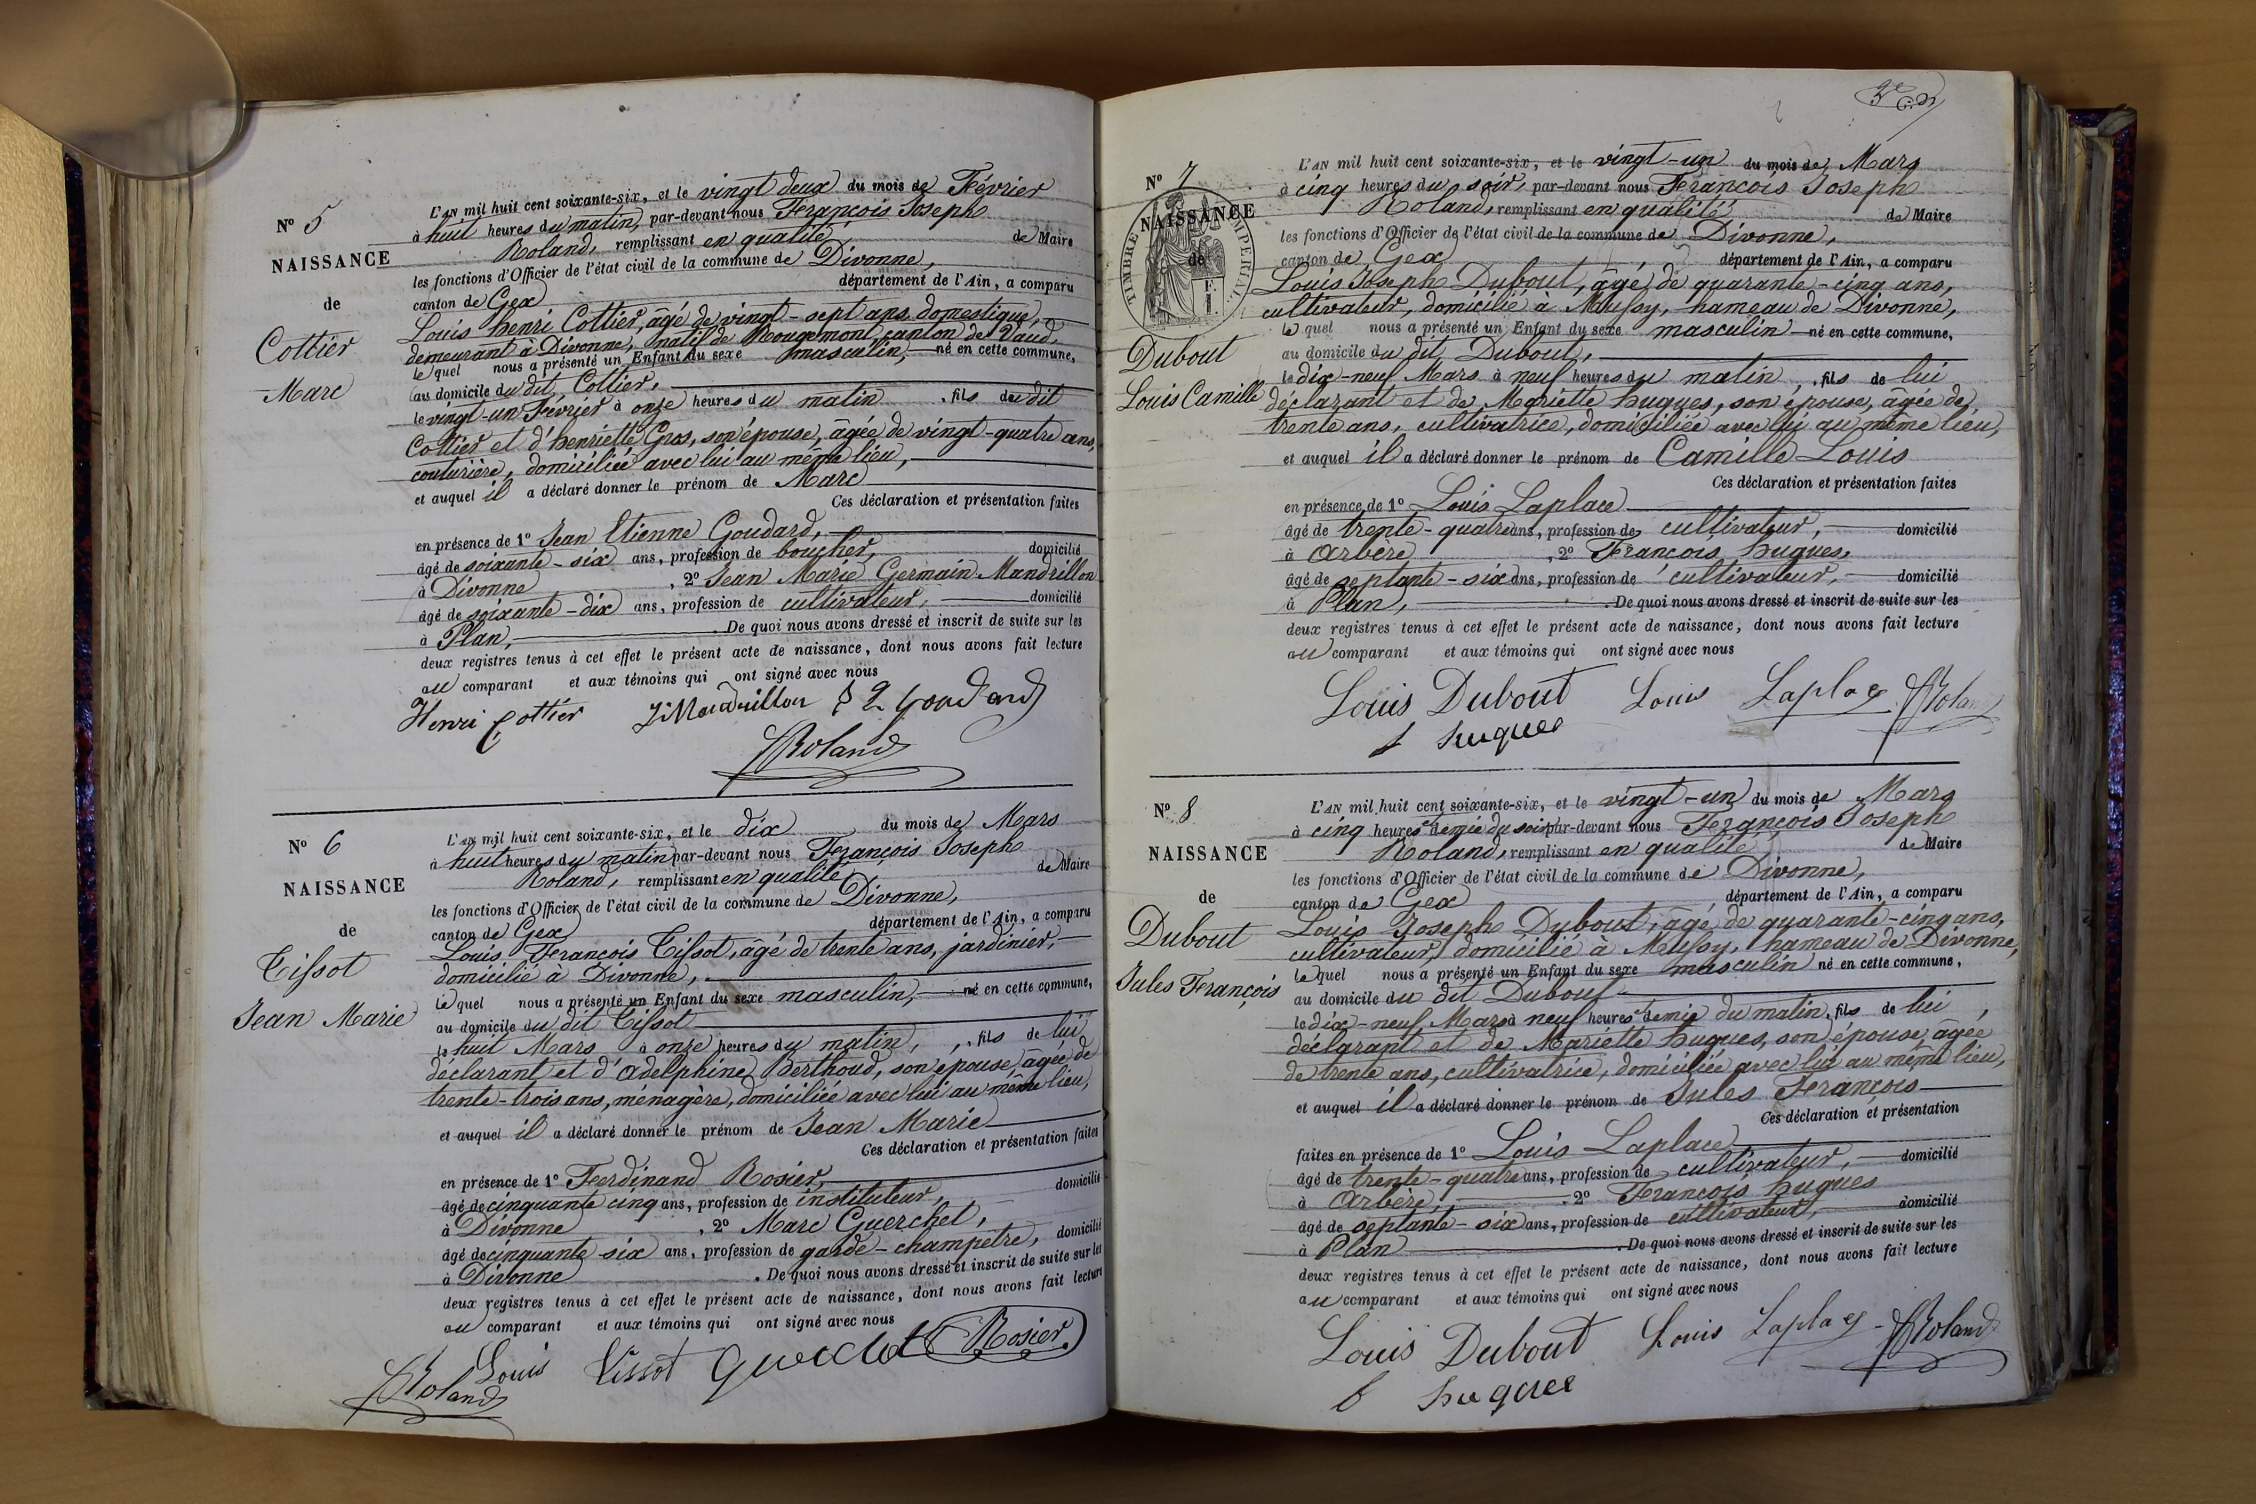 Nº 5
NAISSANCE
de
Cottier
Marc
L'AN mil huit cent soixante-six, et le vingt deux du mois de Février
à huit heures du matin, par-devant nous François Joseph
Roland, remplissant en qualité de Maire
les fonctions d'Officier de l'état civil de la commune de Divonne,
canton de Gex département de l'Ain, a comparu
Louis henri Cottier, âgé de vingt-sept ans, domestique,
demeurant à Divonne, natif de Rougemont canton de Vaud,
lequel nous a présenté un Enfant du sexe masculin, né en cette commune,
au domicile du dit Cottier,
le vingt-un Février à onze heures du matin, fils du dit
Cottier et d'henriette Gros, son épouse, âgée de vingt-quatre ans,
couturière, domiciliée avec lui au même lieu,
et auquel il a déclaré donner le prénom de Marc
Ces déclaration et présentation faites
en présence de 1º Jean Etienne Goudard,
âgé de soixante-six ans, profession de boucher, domicilié
à Divonne, 2º Jean Marie Germain Mandrillon
âgé de soixante-dix ans, profession de cultivateur, domicilié
à Plan, . De quoi nous avons dressé et inscrit de suite sur les
deux registres tenus à cet effet le présent acte de naissance, dont nous avons fait lecture
au comparant et aux témoins qui ont signé avec nous
Henri Cottier JMandrillon Goudard
Roland
Nº 6
NAISSANCE
de
Tissot
Jean Marie
L'AN mil huit cent soixante-six, et le dix du mois de Mars
à huit heures du matin par-devant nous François Joseph
Roland, remplissant en qualité de Maire
les fonctions d'Officier de l'état civil de la commune de Divonne,
canton de Gex département de l'Ain, a comparu
Louis François Tissot, âgé de trente ans, jardinier,
domicilié à Divonne,
lequel nous a présenté un Enfant du sexe masculin, né en cette commune,
au domicile du dit Tissot
le huit Mars à onze heures du matin, fils de lui
déclarant et d'Adelphine Berthoud, son épouse, âgée de
trente-trois ans, ménagère, domiciliée avec lui au même lieu,
et auquel il a déclaré donner le prénom de Jean Marie
Ces déclaration et présentation faites
en présence de 1º Ferdinand Rosier, domicilié
âgé de cinquante cinq ans, profession de instituteur,
à Divonne, 2º Marc Guerchet,
âgé de cinquante six ans, profession de garde-champetre, domicilié
à Divonne . De quoi nous avons dressé et inscrit de suite sur les
deux registres tenus à cet effet le présent acte de naissance, dont nous avons fait lecture
au comparant et aux témoins qui ont signé avec nous
Roland Louis Tissot Guerchet Rosier
Nº 7
NAISSANCE
de
TIMBRE IMPERIAL
Dubout
Louis Camille
L'AN mil huit cent soixante-six, et le vingt-un du mois de Mars
à cinq heures du soir, par-devant nous François Joseph
Roland, remplissant en qualité de Maire
les fonctions d'Officier de l'état civil de la commune de Divonne,
canton de Gex département de l'Ain, a comparu
Louis Joseph Dubout, âgé de quarante-cinq ans,
cultivateur, domicilié à Mussy, hameau de Divonne,
lequel nous a présenté un Enfant du sexe masculin né en cette commune,
au domicile du dit Dubout,
le dix-neuf Mars à neuf heures du matin, fils de lui
déclarant et de Mariette hugues, son épouse, âgée de
trente ans, cultivatrice, domiciliée avec lui au même lieu,
et auquel il a déclaré donner le prénom de Camille Louis
Ces déclaration et présentation faites
en présence de 1º Louis Laplace
âgé de trente-quatre ans, profession de cultivateur, domicilié
à Arbère, 2º François hugues,
âgé de septante-six ans, profession de cultivateur, domicilié
à Plan, . De quoi nous avons dressé et inscrit de suite sur les
deux registres tenus à cet effet le présent acte de naissance, dont nous avons fait lecture
au comparant et aux témoins qui ont signé avec nous
Louis Dubout Louis Laplace Roland
f hugues
Nº 8
NAISSANCE
de
Dubout
Jules François
L'AN mil huit cent soixante-six, et le vingt-un du mois de Mars
à cinq heures et demie du soir par-devant nous François Joseph
Roland, remplissant en qualité de Maire
les fonctions d'Officier de l'état civil de la commune de Divonne,
canton de Gex département de l'Ain, a comparu
Louis Joseph Dubout, âgé de quarante-cinq ans,
cultivateur, domicilié à Mussy, hameau de Divonne,
lequel nous a présenté un Enfant du sexe masculin né en cette commune,
au domicile du dit Dubout
le dix-neuf Mars à neuf heures et demie du matin, fils de lui
déclarant et de Mariette hugues, son épouse, âgée
de trente ans, cultivatrice, domiciliée avec lui au même lieu,
et auquel il a déclaré donner le prénom de Jules François
Ces déclaration et présentation
faites en présence de 1º Louis Laplace
âgé de trente-quatre ans, profession de cultivateur, domicilié
à Arbère, 2º François hugues
âgé de septante-six ans, profession de cultivateur, domicilié
à Plan . De quoi nous avons dressé et inscrit de suite sur les
deux registres tenus à cet effet le présent acte de naissance, dont nous avons fait lecture
au comparant et aux témoins qui ont signé avec nous
Louis Dubout Louis Laplace Roland
f hugues